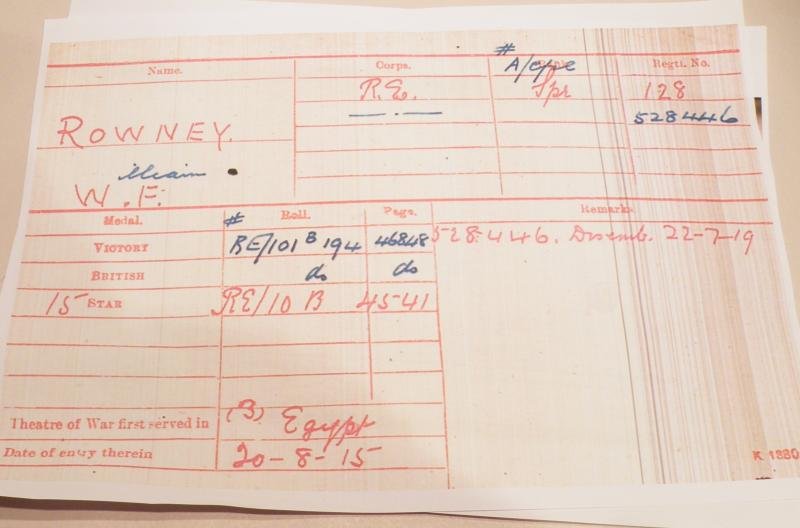 Name. Corps. Regtl. No.
# A/Cpl
R.E. Spr 128
—.— 528446
ROWNEY.
illiam
W.F.
Medal. Roll. Page. Remarks.
#
VICTORY RE/101 B 194 46848 528446. Disemb. 22-7-19
BRITISH do do
15 STAR RE/10 B 45-41
Theatre of War first served in (3) Egypt
Date of entry therein 20-8-15
K 1380